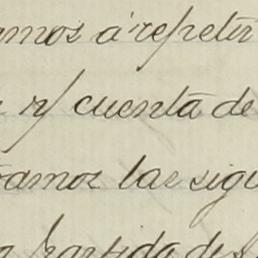 amos á repetir
r/ cuenta de
amos las sigu
partida de